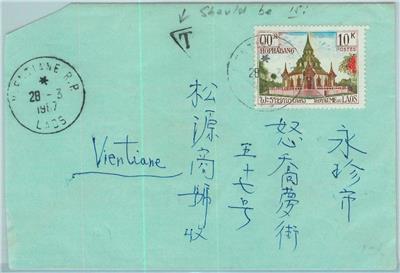 Should be 15:
T
VIENTIANE R.P.
28 - 3
1967
LAOS
10 K
POSTES
HOPHABANG
ROYAUME DU LAOS
永珍市
怒喬夢街
五十七号
松源商號收
Vientiane